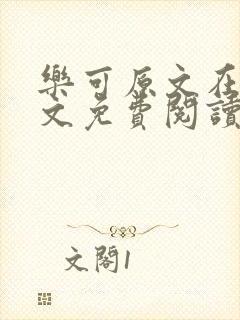 樂可原文在
文免費閱讀
文閣1